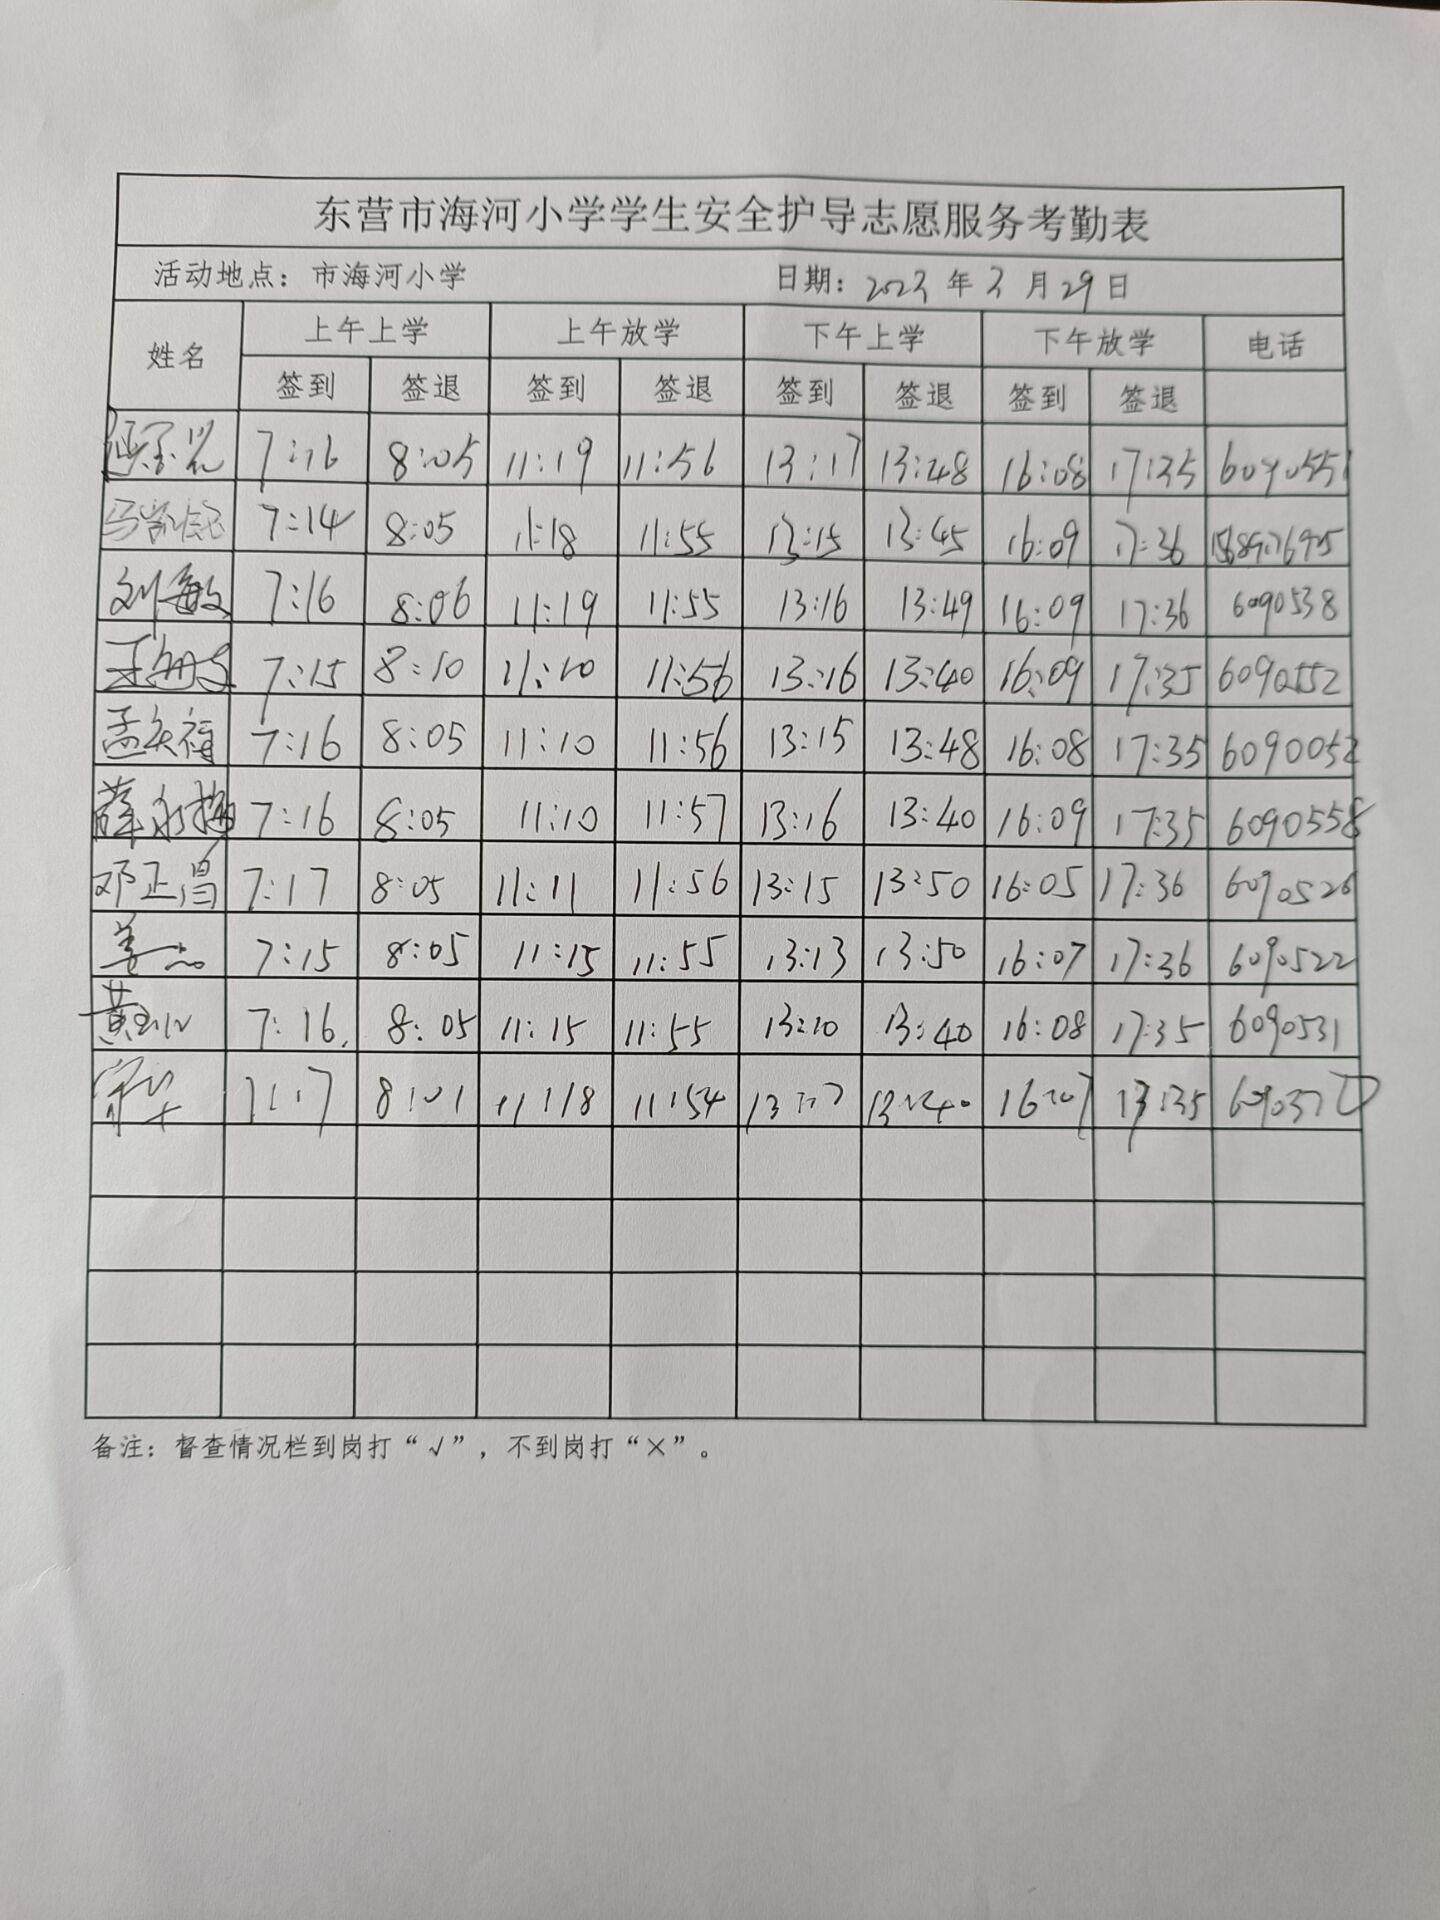 东营市海河小学学生安全护导志愿服务考勤表
活动地点：市海河小学 日期：2023年3月29日
姓名 上午上学 上午放学 下午上学 下午放学 电话
签到 签退 签到 签退 签到 签退 签到 签退
7:16 8:05 11:19 11:56 13:17 13:48 16:08 17:35 6090551
7:14 8:05 11:18 11:55 13:15 13:45 16:09 17:36
刘敏 7:16 8:06 11:19 11:55 13:16 13:49 16:09 17:36 6090538
7:15 8:10 11:10 11:56 13:16 13:40 16:09 17:35 6090552
孟庆福 7:16 8:05 11:10 11:56 13:15 13:48 16:08 17:35 6090052
薛永梅 7:16 8:05 11:10 11:57 13:16 13:40 16:09 17:35 6090558
邓正昌 7:17 8:05 11:11 11:56 13:15 13:50 16:05 17:36 6090526
7:15 8:05 11:15 11:55 13:13 13:50 16:07 17:36 6090522
7:16. 8:05 11:15 11:55 13:10 13:40 16:08 17:35 6090531
7:17 8:01 11:18 11:54 13:17 13:40 16:07 13:35
备注：督查情况栏到岗打“√”，不到岗打“×”。